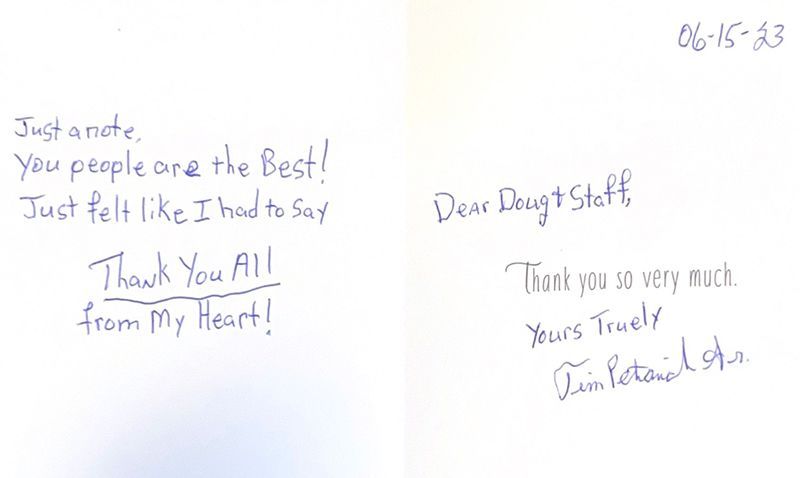 Just a note,
You people are the Best!
Just felt like I had to say
Thank You All
from My Heart!
06-15-23
Dear Doug & Staff,
Thank you so very much.
Yours Truely
Jim